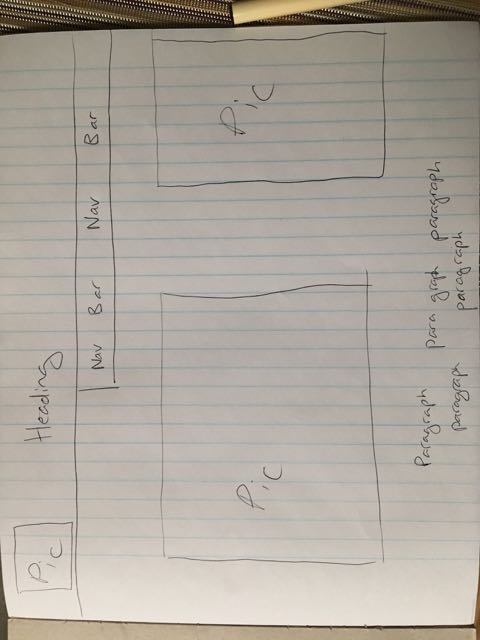 Pic Heading
Nav Bar Nav Bar
Pic Pic
Paragraph para graph paragraph
paragraph paragraph